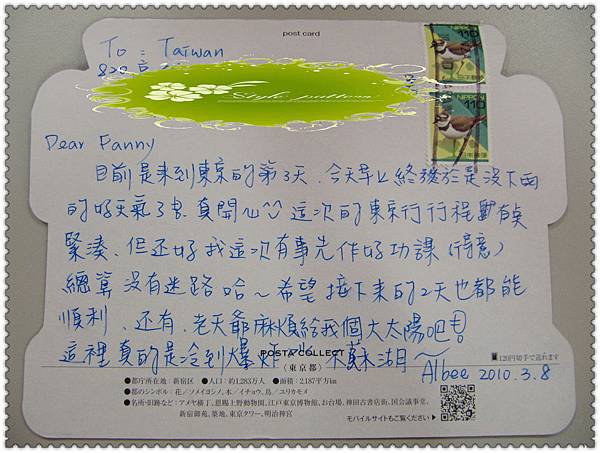 post card
To = Taiwan
820
110
NIPPON
110
Style pattern
Dear Fanny
目前是來到東京的第3天、今天早上終於是沒下雨
的好天氣了!真開心 這次的東京行行程有點
緊湊、但還好我這次有事先作好功課(得意)
總算沒有迷路哈~希望接下來的2天也都能
順利、還有、老天爺麻煩給我個大太陽吧!
這裡真的是冷到爆炸 蘇湖~
Albee 2010.3.8
POSTA COLLECT
(東京都)
120円切手で送れます
●都庁所在地/新宿区 ●人口:約1,283万人 ●面積:2,187平方km
●都のシンボル:花/ソメイヨシノ、木/イチョウ、鳥/ユリカモメ
●名所・旧跡など:アメヤ横丁、恩賜上野動物園、江戸東京博物館、お台場、神田古書店街、国会議事堂、
新宿御苑、築地、東京タワー、明治神宮
モバイルサイトもご覧ください▶